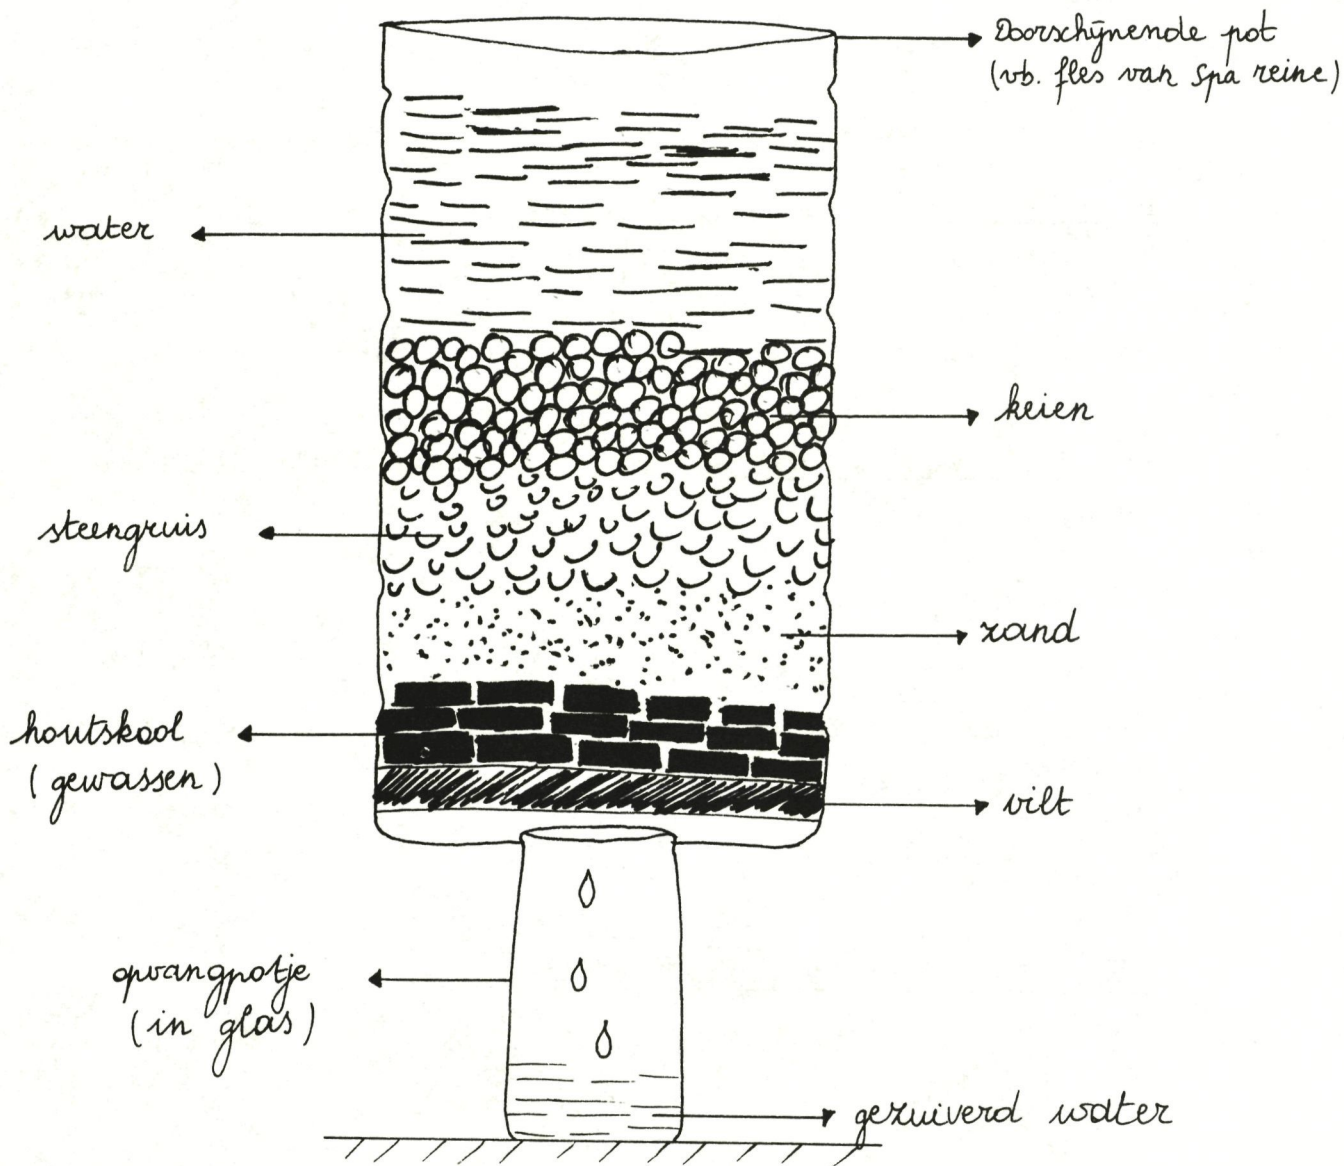 Doorschijnende pot
(vb. fles van Spa reine)
water
keien
steengruis
zand
houtskool
(gewassen)
vilt
opvangpotje
(in glas)
gezuiverd water